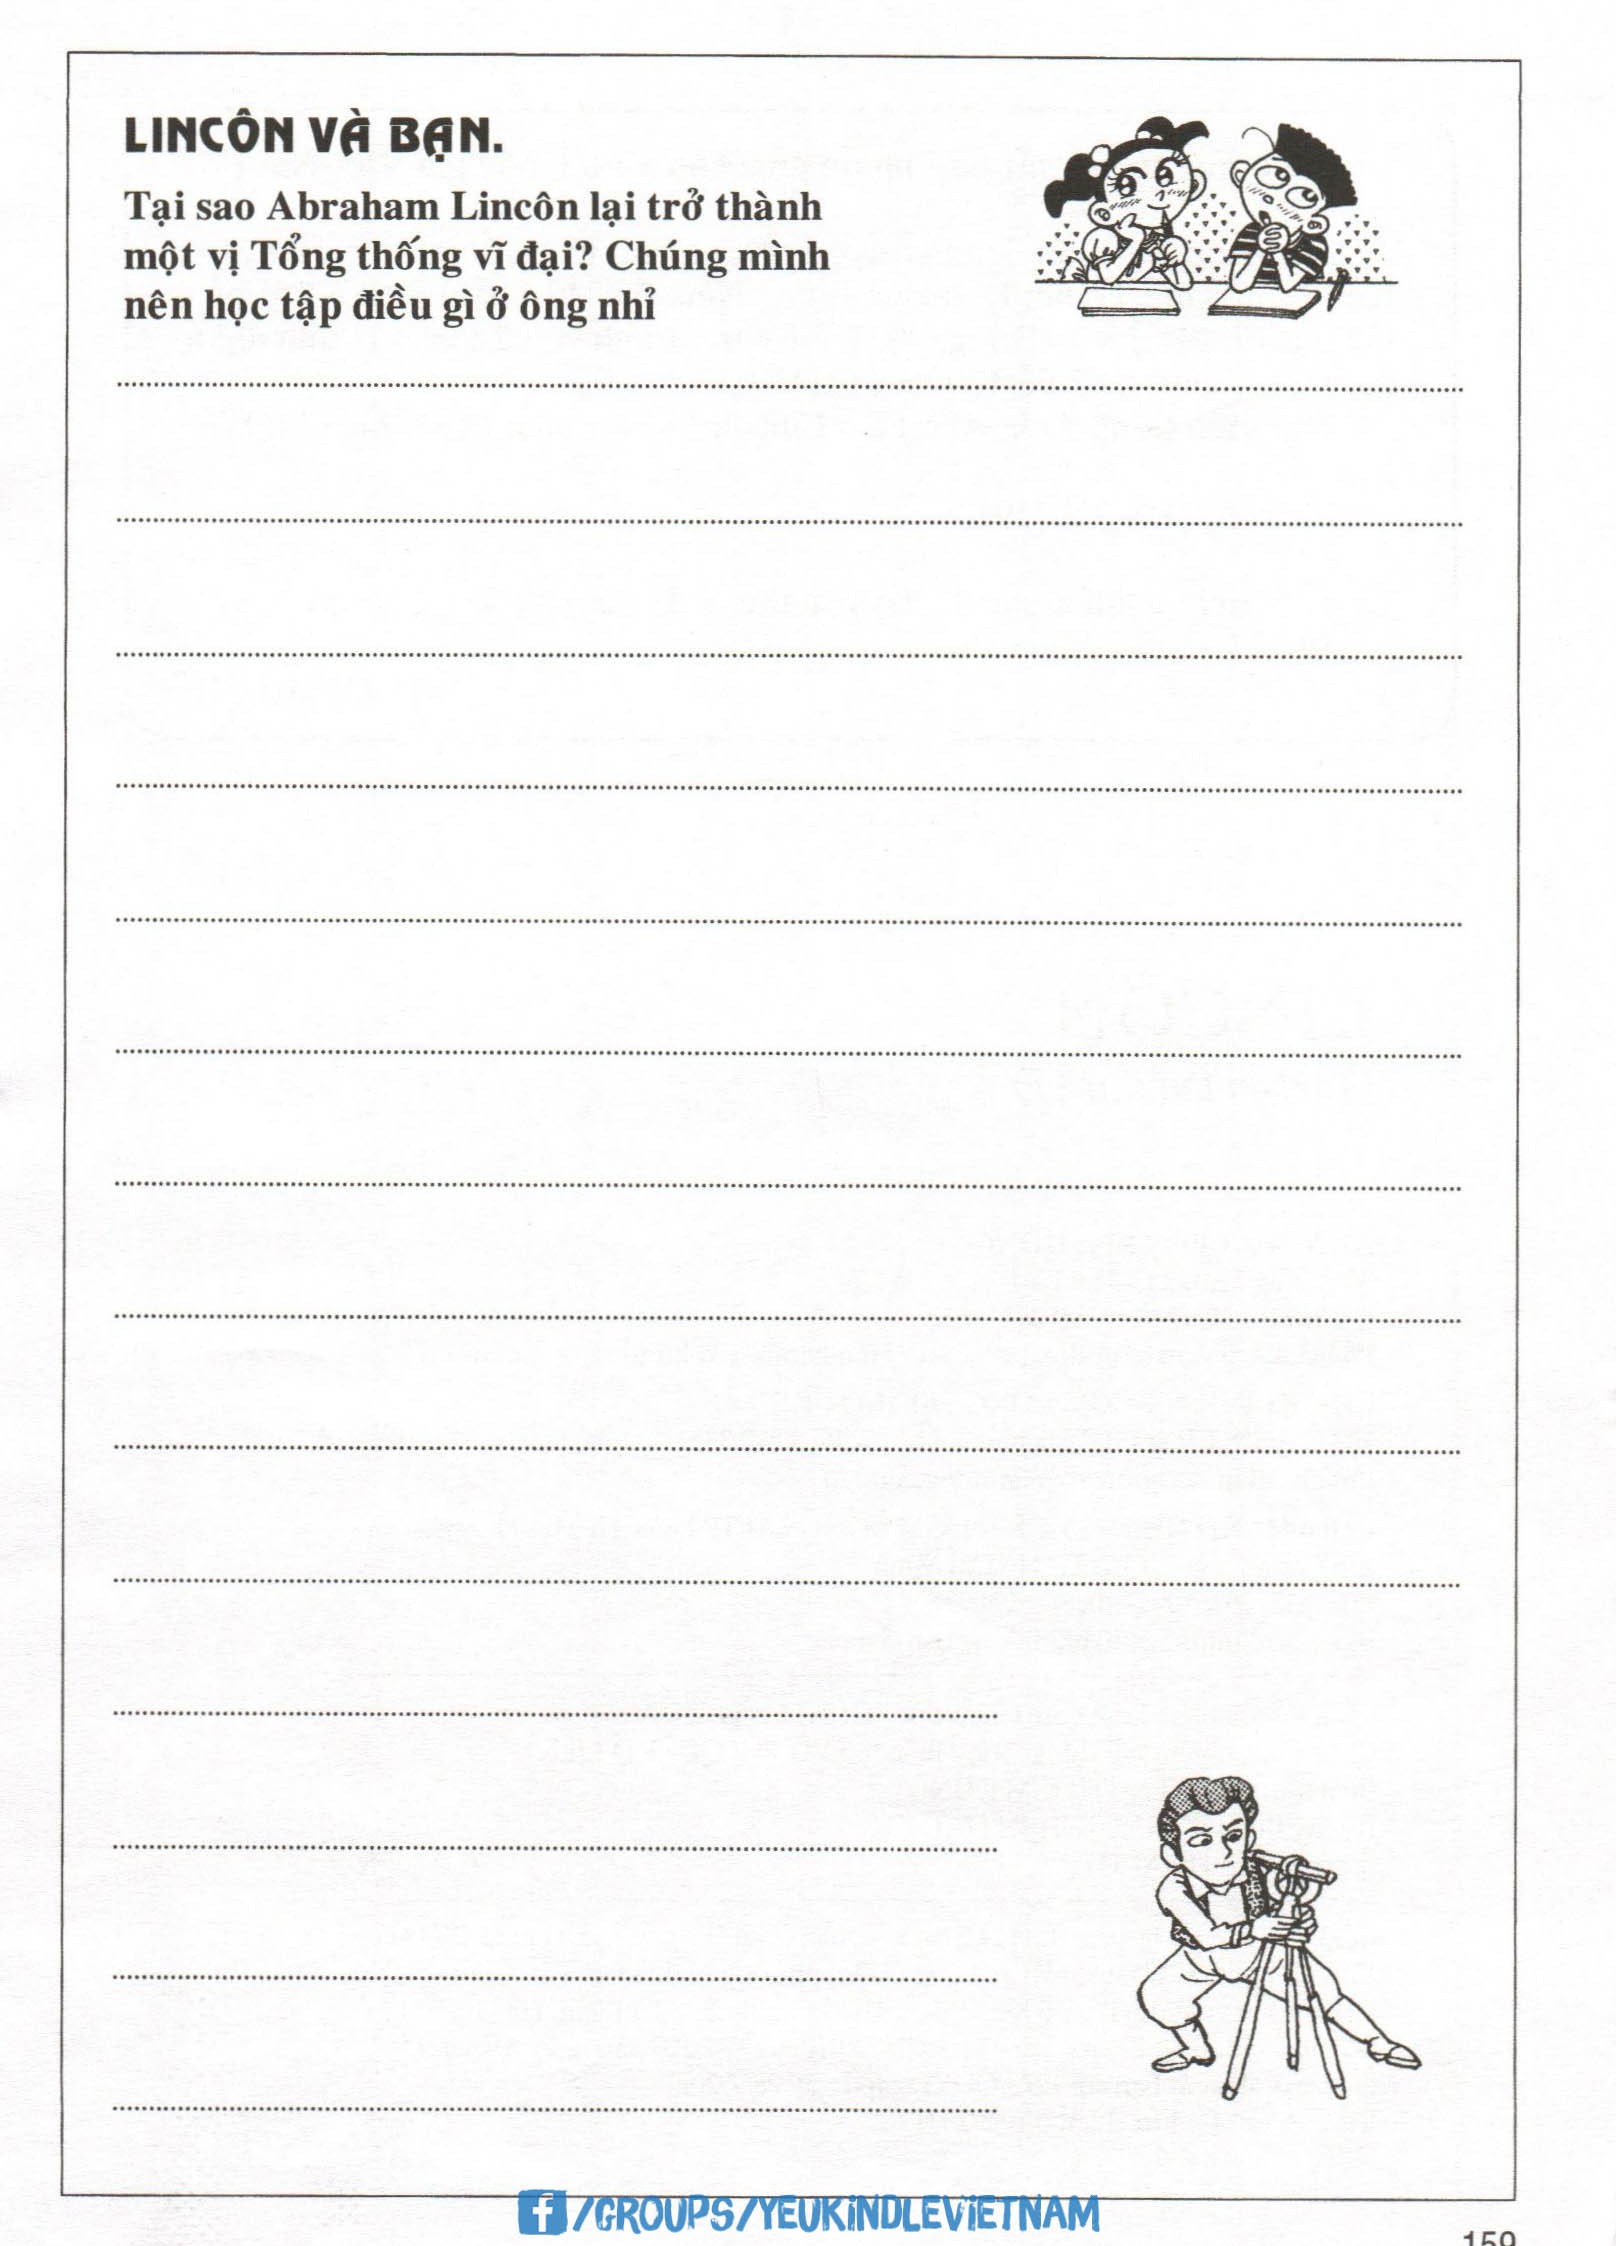 LINCÔN VÀ BẠN.
Tại sao Abraham Lincôn lại trở thành
một vị Tổng thống vĩ đại? Chúng mình
nên học tập điều gì ở ông nhỉ
f/GROUPS/YEUKINDLEVIETNAM
159